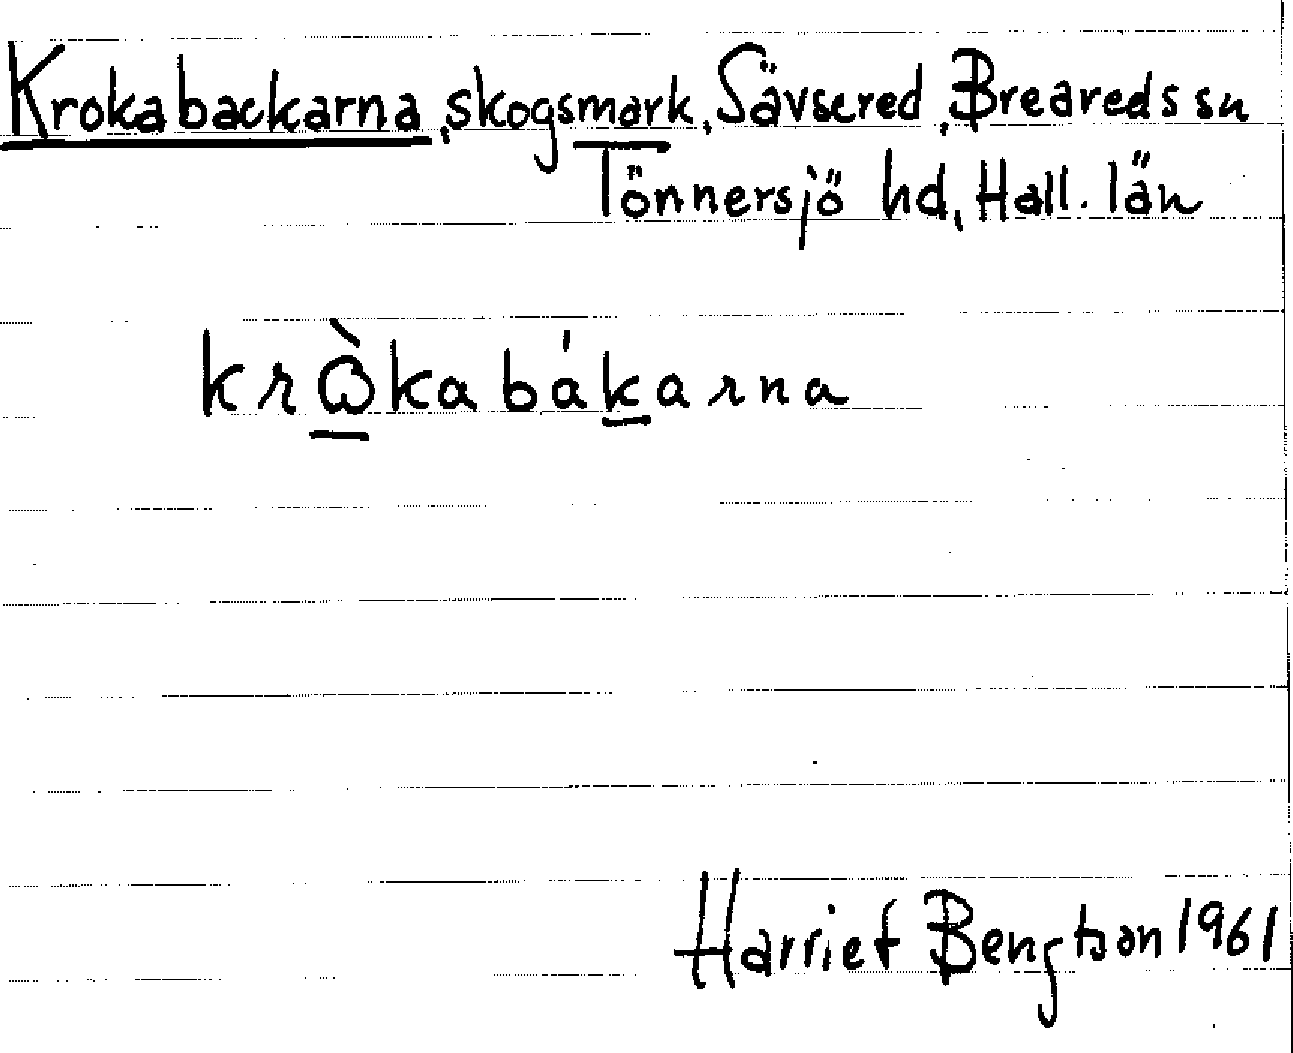 Krokabackarna, skogsmark, Sävsered, Breareds sn
Tönnersjö hd, Hall. län
krɷ̀kabákarna
Harriet Bengtson 1961